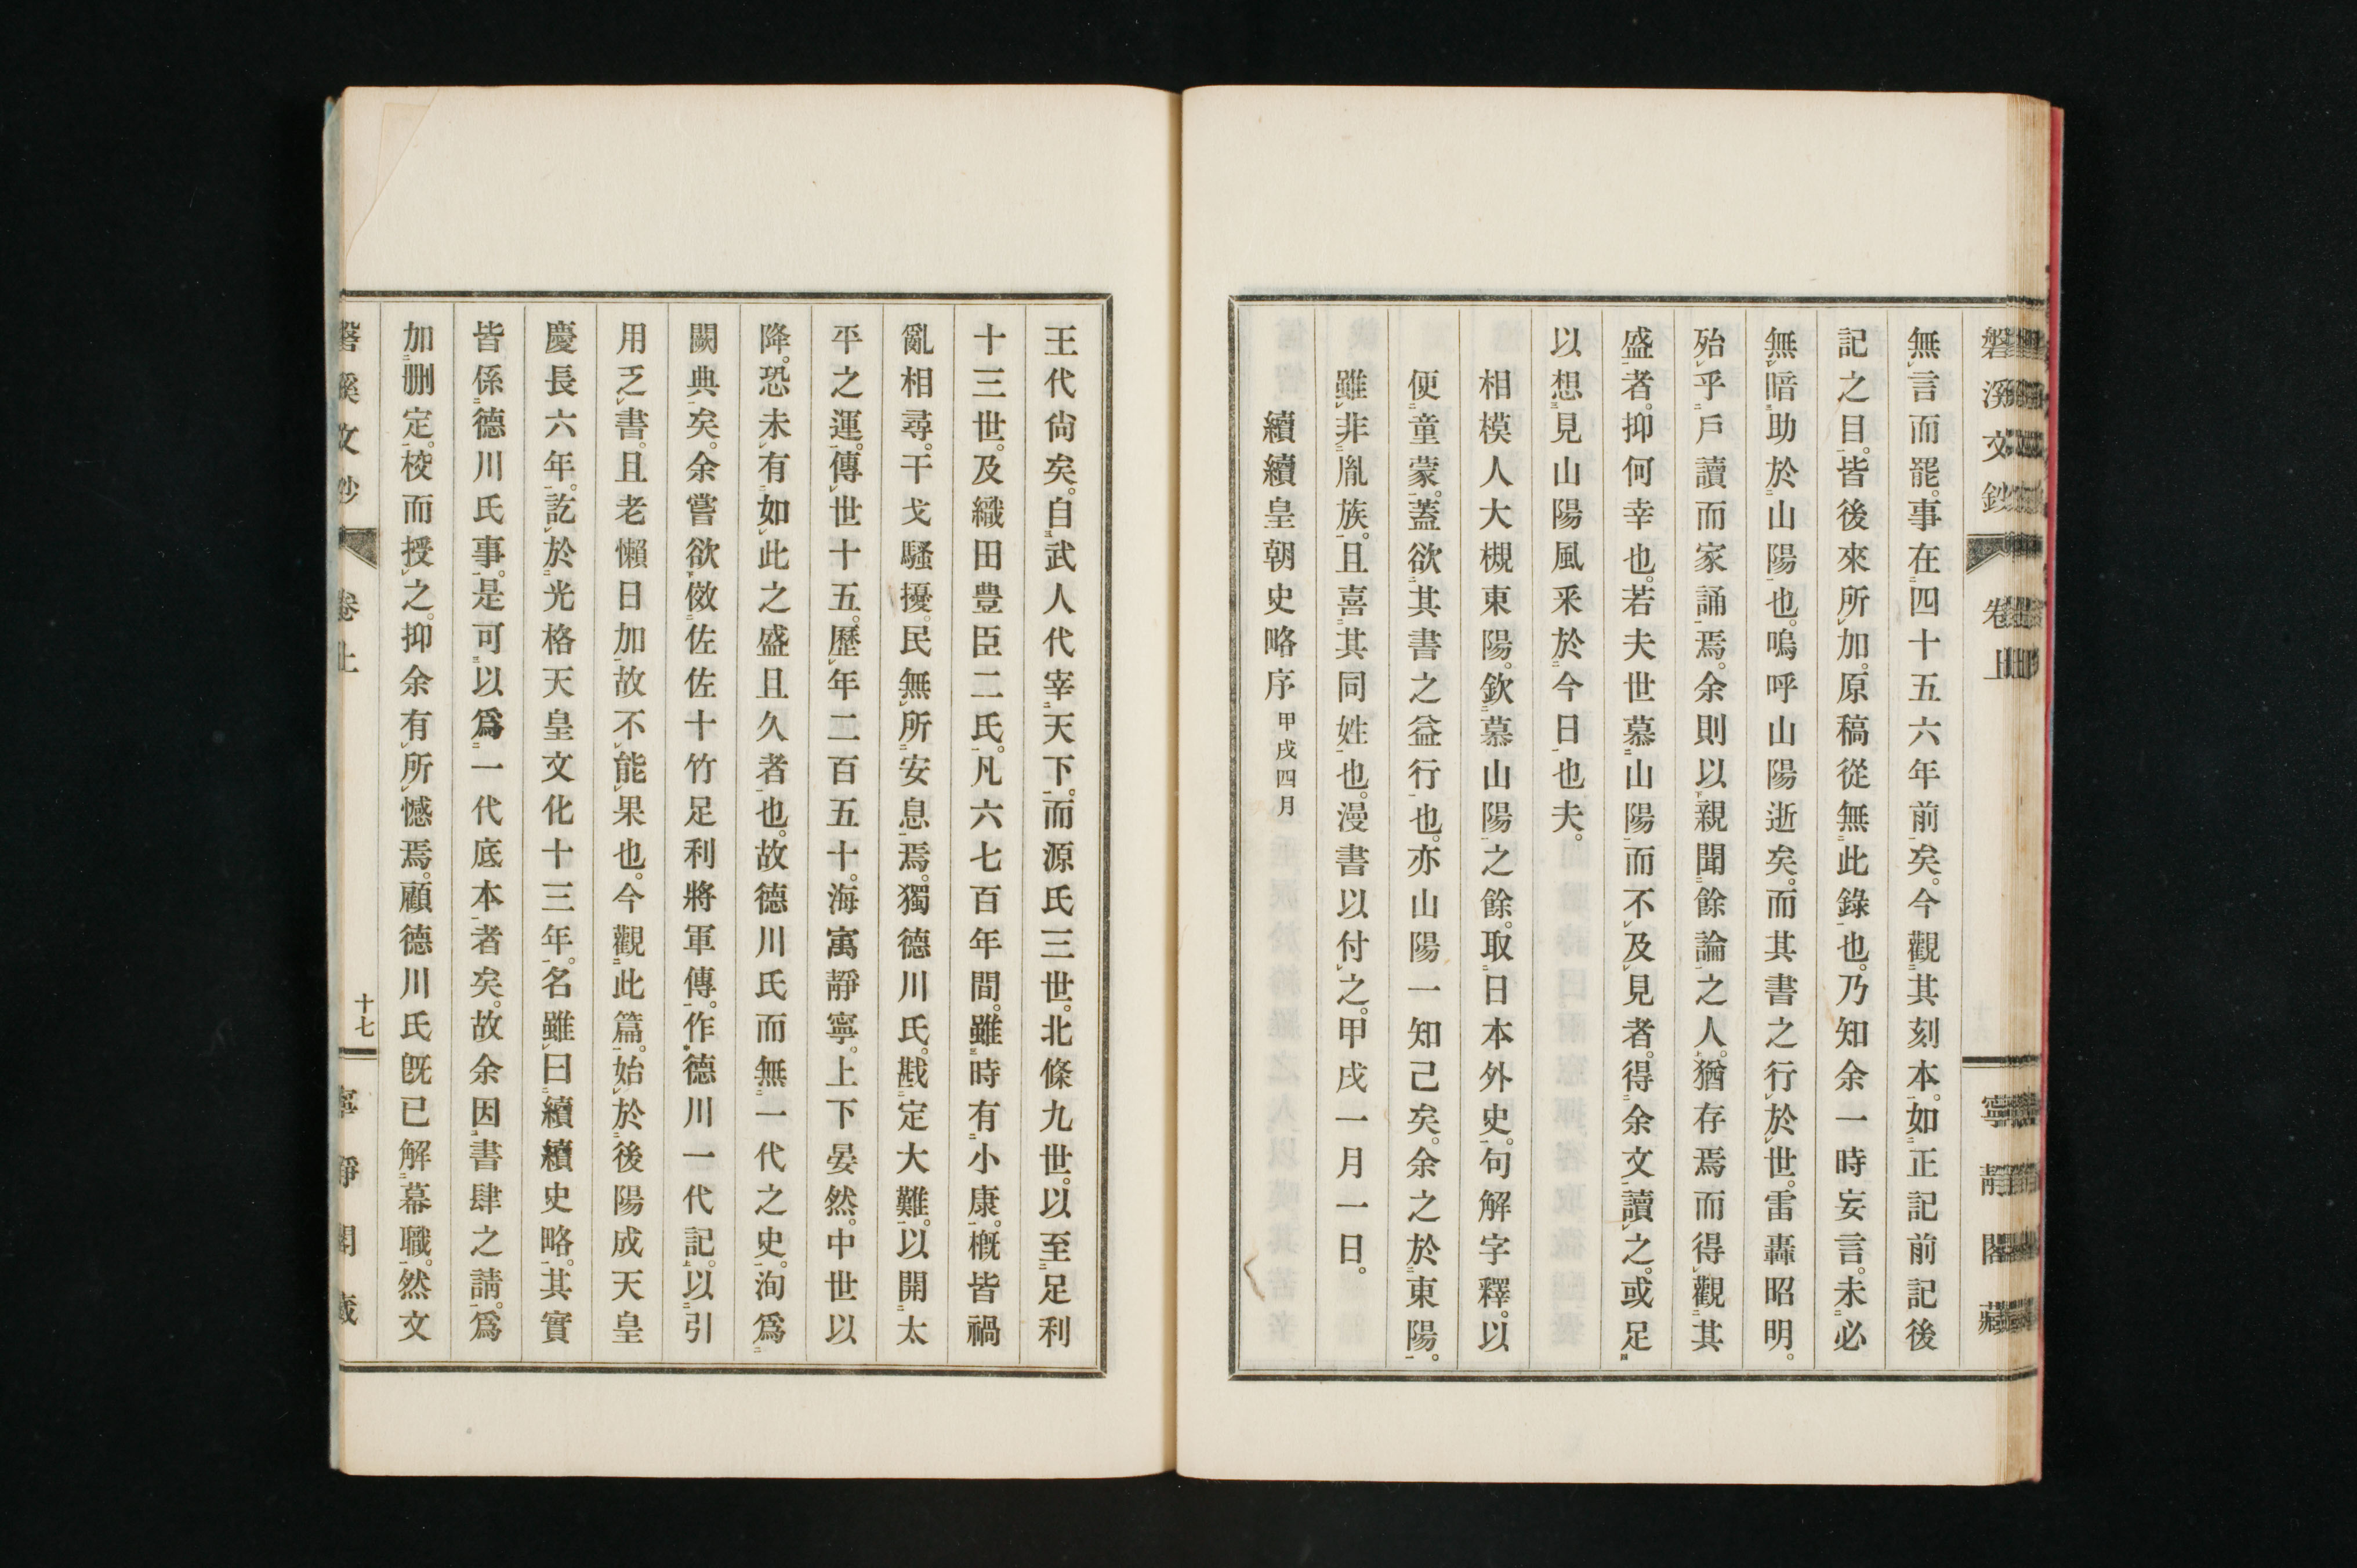 磐溪文鈔 卷上 寧靜閣藏
無言而罷。事在四十五六年前矣。今觀其刻本。如正記前記後
記之目。皆後來所加。原稿從無此錄也。乃知余一時妄言。未必
無暗助於山陽也。嗚呼山陽逝矣。而其書之行於世。雷轟昭明。
殆乎戶讀而家誦焉。余則以親聞餘論之人。猶存焉而得觀其
盛者。抑何幸也。若夫世慕山陽而不及見者。得余文讀之。或足
以想見山陽風釆於今日也夫。
相模人大槻東陽。欽慕山陽之餘。取日本外史。句解字釋。以
便童蒙。蓋欲其書之益行也。亦山陽一知己矣。余之於東陽。
雖非胤族。且喜其同姓也。漫書以付之。甲戌一月一日。
續續皇朝史略序 甲戌四月
王代尙矣。自武人代宰天下。而源氏三世。北條九世。以至足利
十三世。及織田豊臣二氏。凡六七百年間。雖時有小康。槪皆禍
亂相尋。干戈騷擾。民無所安息焉。獨德川氏。戡定大難。以開太
平之運。傳世十五。歷年二百五十。海寓靜寧。上下晏然。中世以
降。恐未有如此之盛且久者也。故德川氏而無一代之史。洵爲
闕典矣。余嘗欲倣佐佐十竹足利將軍傳。作德川一代記。以引
用乏書。且老懶日加故不能果也。今觀此篇。始於後陽成天皇
慶長六年。訖於光格天皇文化十三年。名雖曰續續史略。其實
皆係德川氏事。是可以爲一代底本者矣。故余因書肆之請。爲
加删定。校而授之。抑余有所憾焉。顧德川氏旣已解幕職。然文
磐溪文鈔 卷上 十七 寧靜閣藏